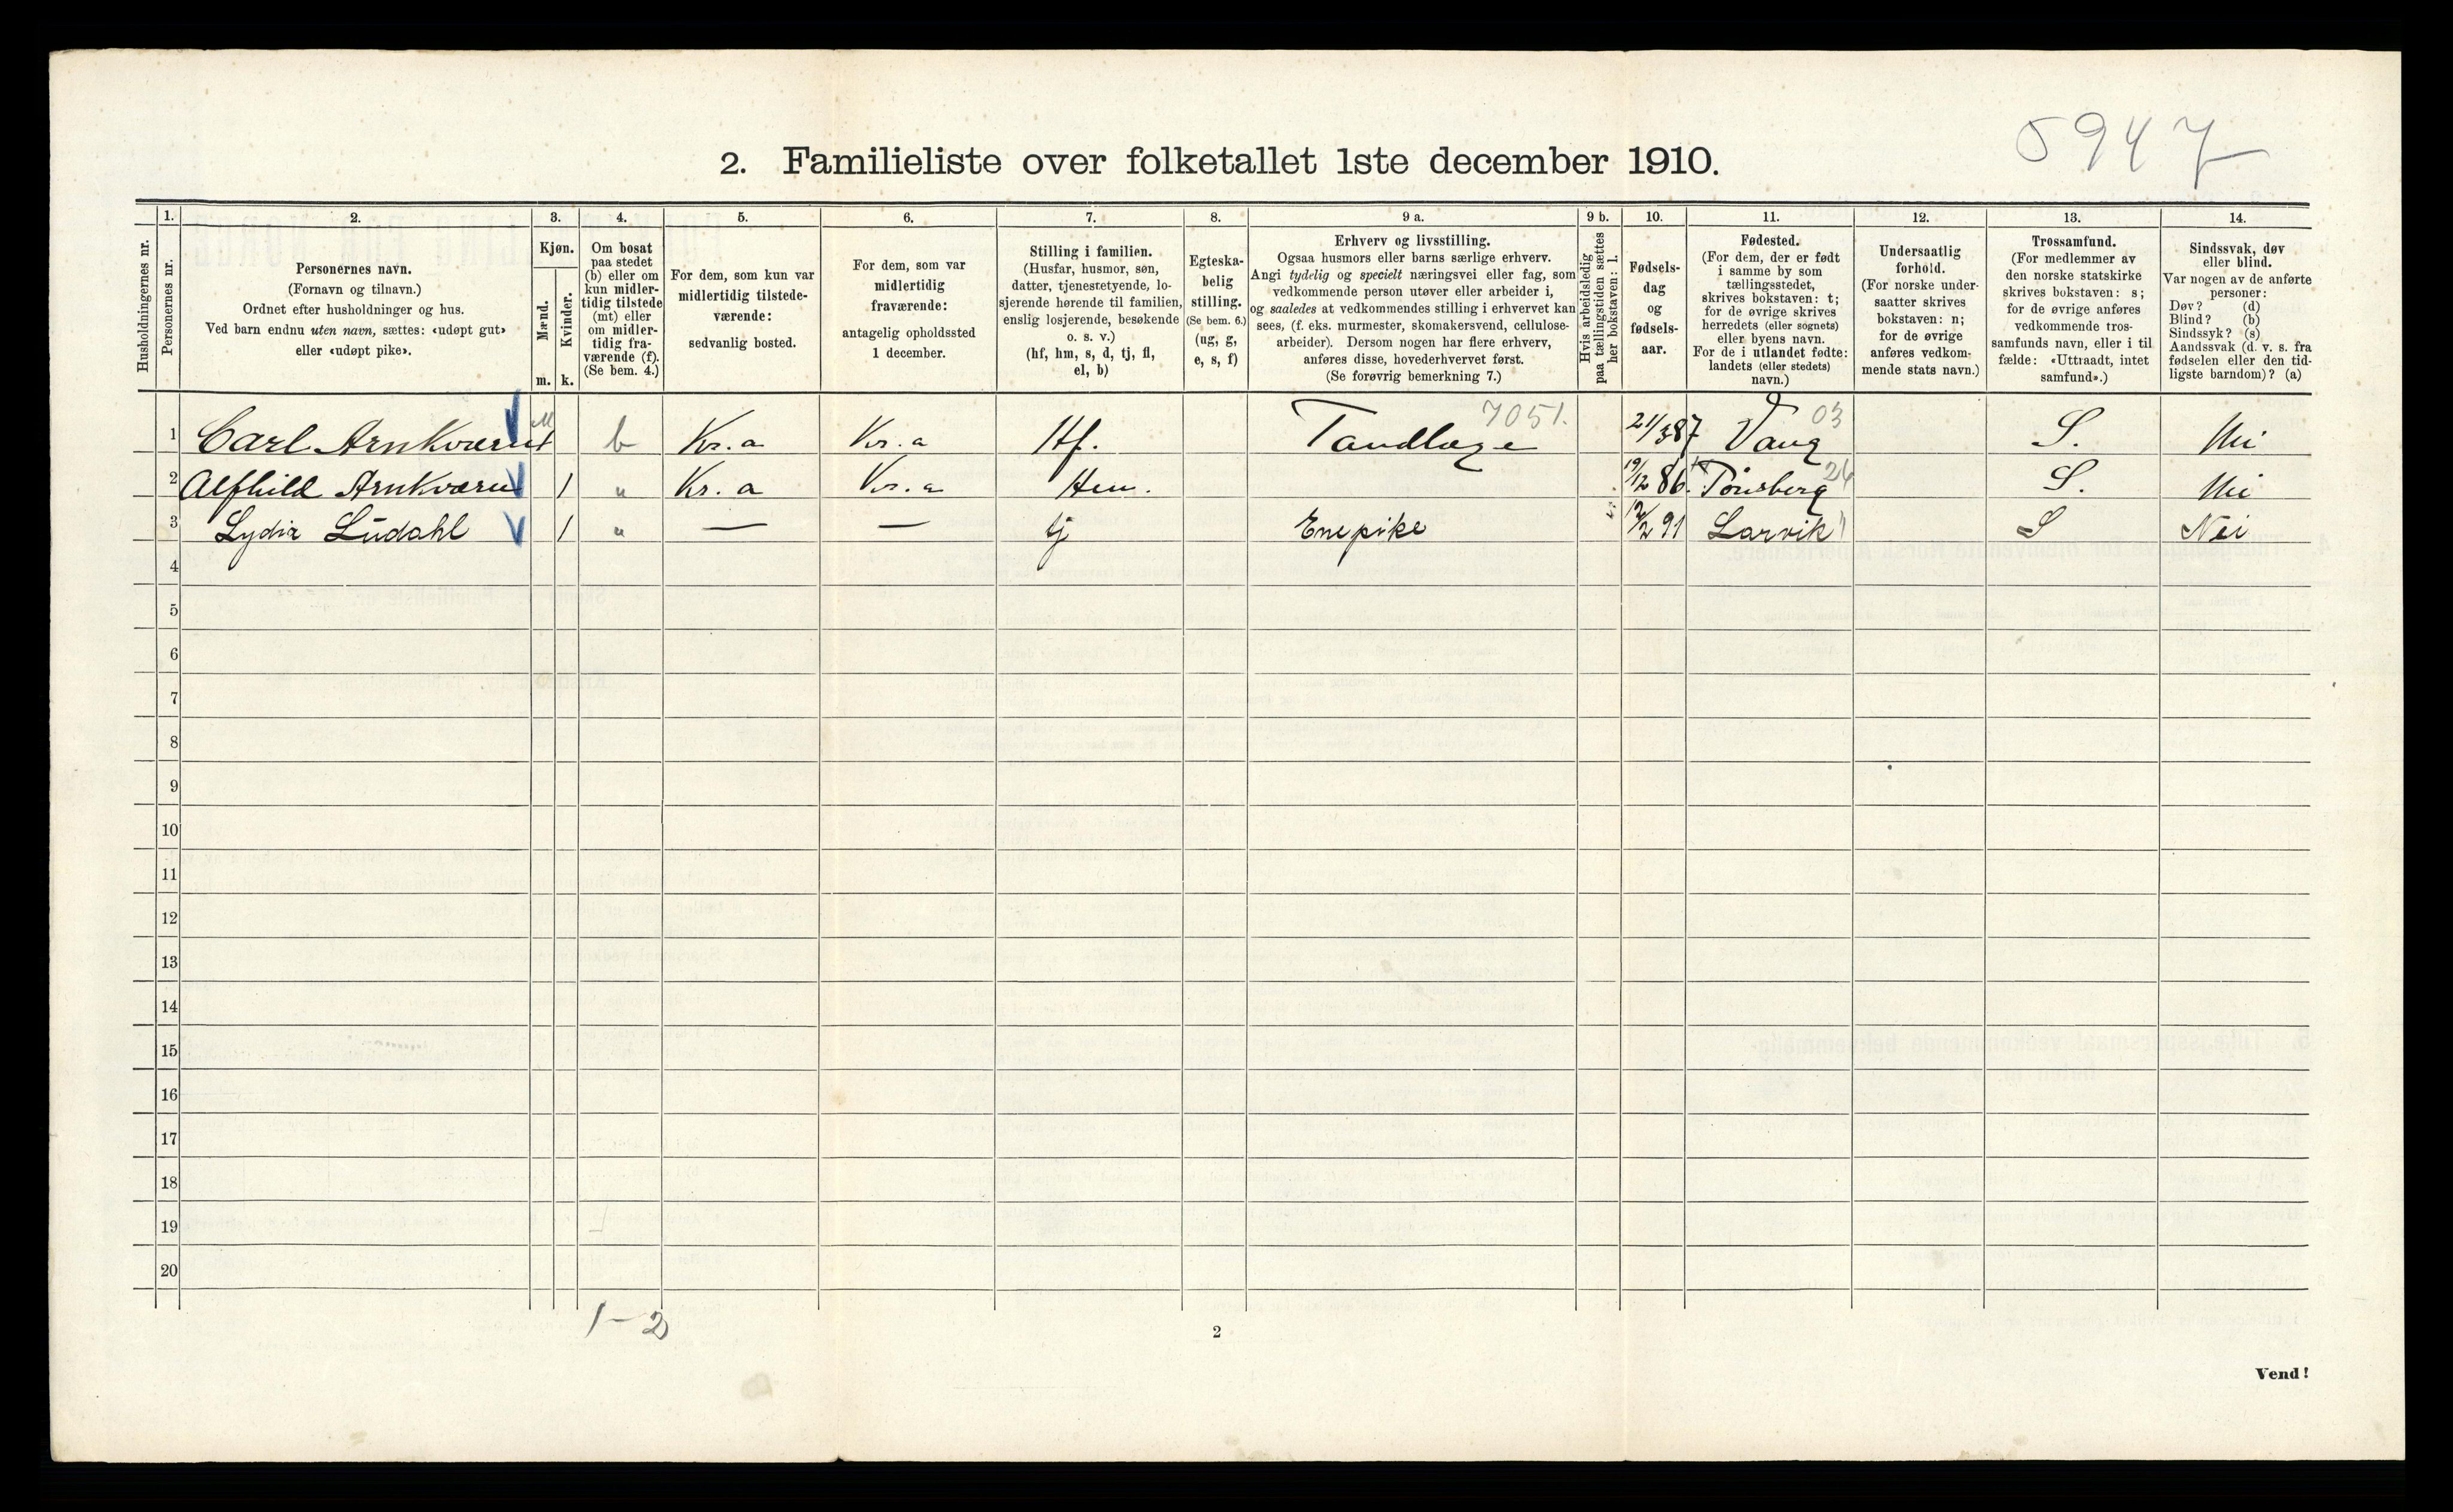 5947
2. Familieliste over folketallet 1ste december 1910.
Husholdningernes nr.
1.
Personernes nr.
2.
Personernes navn.
(Fornavn og tilnavn.)
Ordnet efter husholdninger og hus.
Ved barn endnu uten navn, sættes: «udøpt gut»
eller «udøpt pike».
3.
Kjøn.
Mænd.
Kvinder.
m. k.
4.
Om bosat
paa stedet
(b) eller om
kun midler-
tidig tilstede
(mt) eller
om midler-
tidig fra-
værende (f).
(Se bem. 4.)
5.
For dem, som kun var
midlertidig tilstede-
værende:
sedvanlig bosted.
6.
For dem, som var
midlertidig
fraværende:
antagelig opholdssted
1 december.
7.
Stilling i familien.
(Husfar, husmor, søn,
datter, tjenestetyende, lo-
sjerende hørende til familien,
enslig losjerende, besøkende
o. s. v.)
(hf, hm, s, d, tj, fl,
el, b)
8.
Egteska-
belig
stilling.
(Se bem. 6.)
(ug, g,
e, s, f)
9 a.
Erhverv og livsstilling.
Ogsaa husmors eller barns særlige erhverv.
Angi tydelig og specielt næringsvei eller fag, som
vedkommende person utøver eller arbeider i,
og saaledes at vedkommendes stilling i erhvervet kan
sees, (f. eks. murmester, skomakersvend, cellulose-
arbeider). Dersom nogen har flere erhverv,
anføres disse, hovederhvervet først.
(Se forøvrig bemerkning 7.)
9 b.
Hvis arbeidsledig
paa tællingstiden sættes
her bokstaven: l.
10.
Fødsels-
dag
og
fødsels-
aar.
11.
Fødested.
(For dem, der er født
i samme by som
tællingsstedet,
skrives bokstaven: t;
for de øvrige skrives
herredets (eller sognets)
eller byens navn.
For de i utlandet fødte:
landets (eller stedets)
navn.)
12.
Undersaatlig
forhold.
(For norske under-
saatter skrives
bokstaven: n;
for de øvrige
anføres vedkom-
mende stats navn.)
13.
Trossamfund.
(For medlemmer av
den norske statskirke
skrives bokstaven: s;
for de øvrige anføres
vedkommende tros-
samfunds navn, eller i til-
fælde: «Uttraadt, intet
samfund».)
14.
Sindssvak, døv
eller blind.
Var nogen av de anførte
personer:
Døv? (d)
Blind? (b)
Sindssyk? (s)
Aandssvak (d. v. s. fra
fødselen eller den tid-
ligste barndom)? (a)
1 Carl Arnkværn 1 b Kr.a Kr.a Hf. Tandlæge 7051. 21/3 87 Vang 03 S. Nei
2 Alfhild Arnkværn 1 " Kr.a Kr.a Hm. 19/12 86. Tønsberg 24 S. Nei
3 Lydia Lüdahl 1 " — — tj Enepike 12/2 91 Larvik S Nei
4
5
6
7
8
9
10
11
12
13
14
15
16
17
18
19
20
1-2
2
Vend!